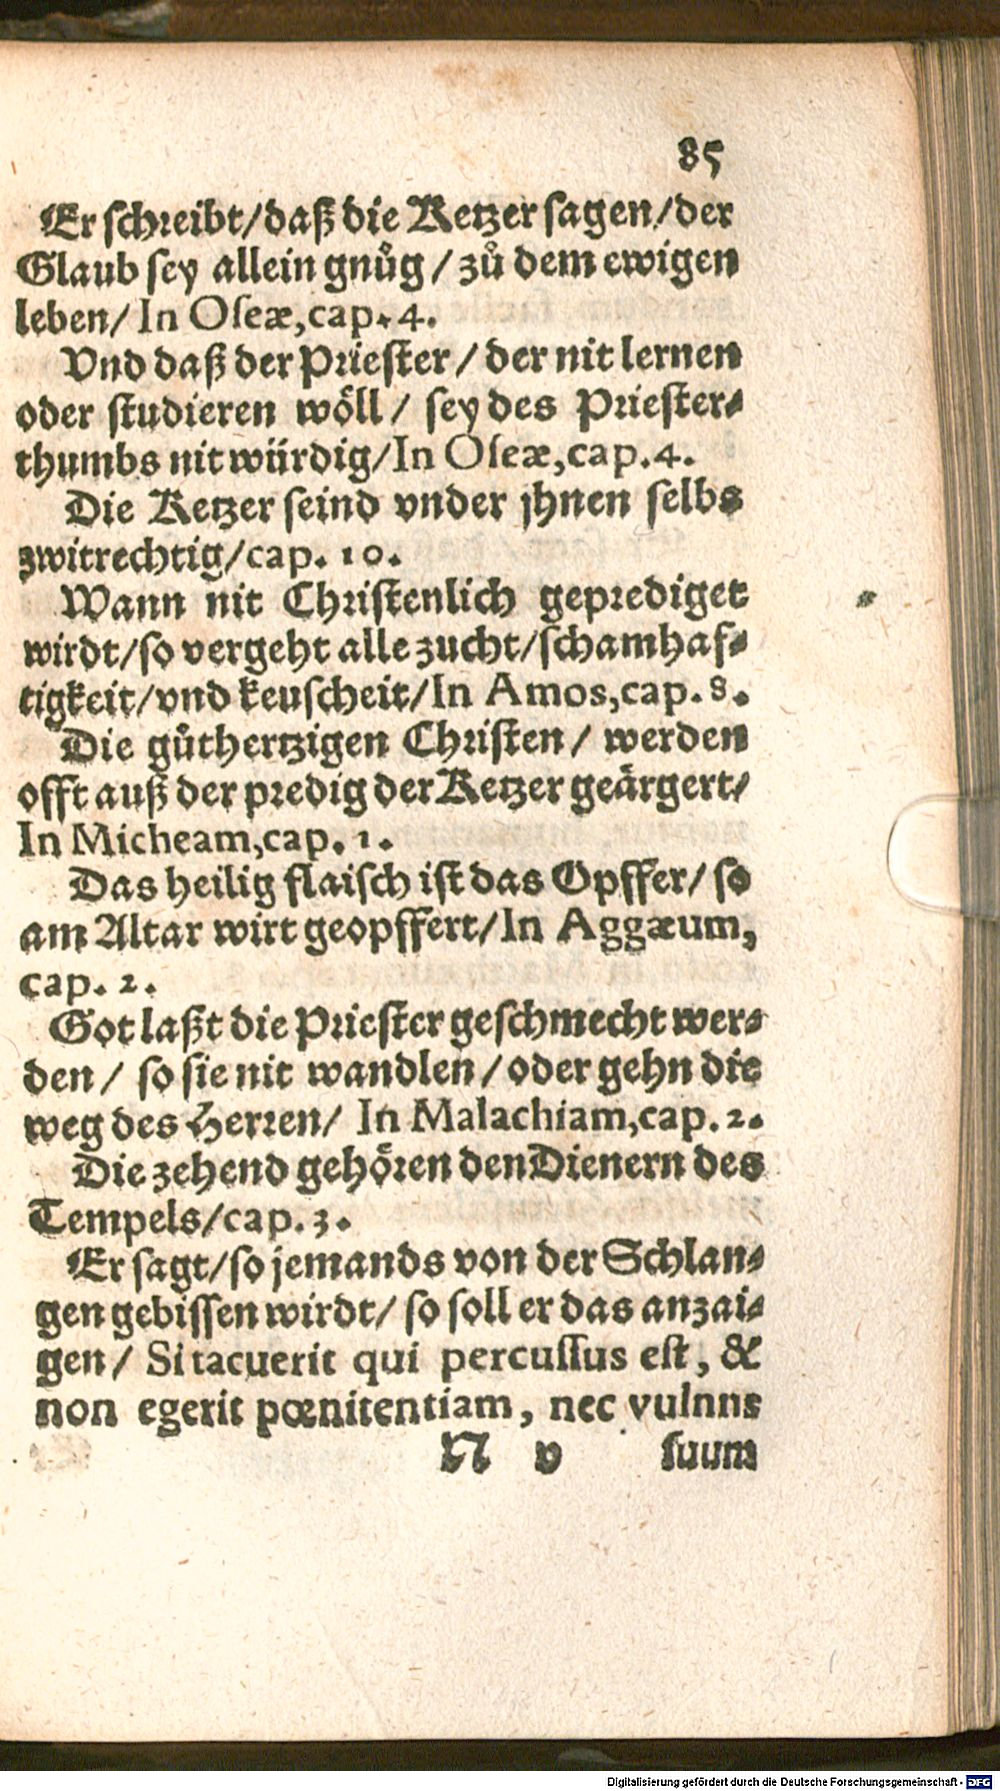 85
Er schreibt/daß die Ketzer sagen/der
Glaub sey allein gnůg/zů dem ewigen
leben/In Oseæ,cap.4.
Vnd daß der Priester/der nit lernen
oder studieren wöll/ sey des Priester-
thumbs nit würdig/In Oseæ,cap.4.
Die Ketzer seind vnder jhnen selbs
zwitrechtig/cap. 10.
Wann nit Christenlich geprediget
wirdt/so vergeht alle zucht/schamhaf-
tigkeit/vnd keuscheit/In Amos,cap.8.
Die gůthertzigen Christen/ werden
offt auß der predig der Ketzer geärgert/
In Micheam,cap. 1.
Das heilig flaisch ist das Opffer/so
am Altar wirt geopffert/In Aggæum,
cap. 2.
Got laßt die Priester geschmecht wer-
den/ so sie nit wandlen/oder gehn die
weg des Herren/ In Malachiam,cap.2.
Die zehend gehören den Dienern des
Tempels/cap.3.
Er sagt/so jemands von der Schlan-
gen gebissen wirdt/so soll er das anzai-
gen/ Si tacuerit qui percussus est, &
non egerit pœnitentiam, nec vulnns
N v suum
Digitalisierung gefördert durch die Deutsche Forschungsgemeinschaft - DFG